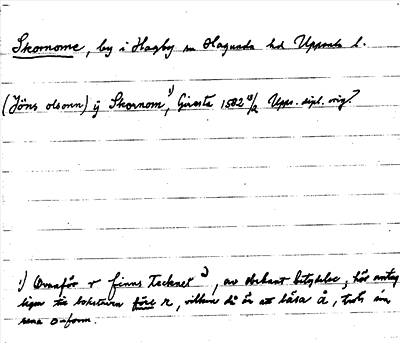 Skornome, by i Hagby sn Hagunda hd Uppsala l.
(Jöns olsonn) ij Skornom¹⁾, Giresta 1582 18/2 Upps. dipl. orig?
1) Ovanför r finns tecknet, av obekant betydelse; hör antag
ligen till bokstaven före r, vilken då är att läsa å, trots sin
rena o-form.